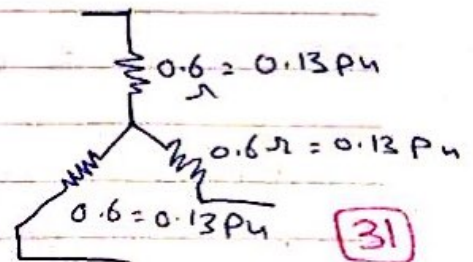 0.6 Ω = 0.13 pu
0.6 Ω = 0.13 pu
0.6 = 0.13 pu
31